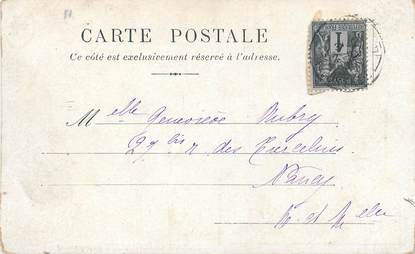 CARTE POSTALE
Ce côté est exclusivement réservé à l'adresse.
Melle Geneviève Aubry
27 bis r des Tiercelins
Nancy
M. et Melle